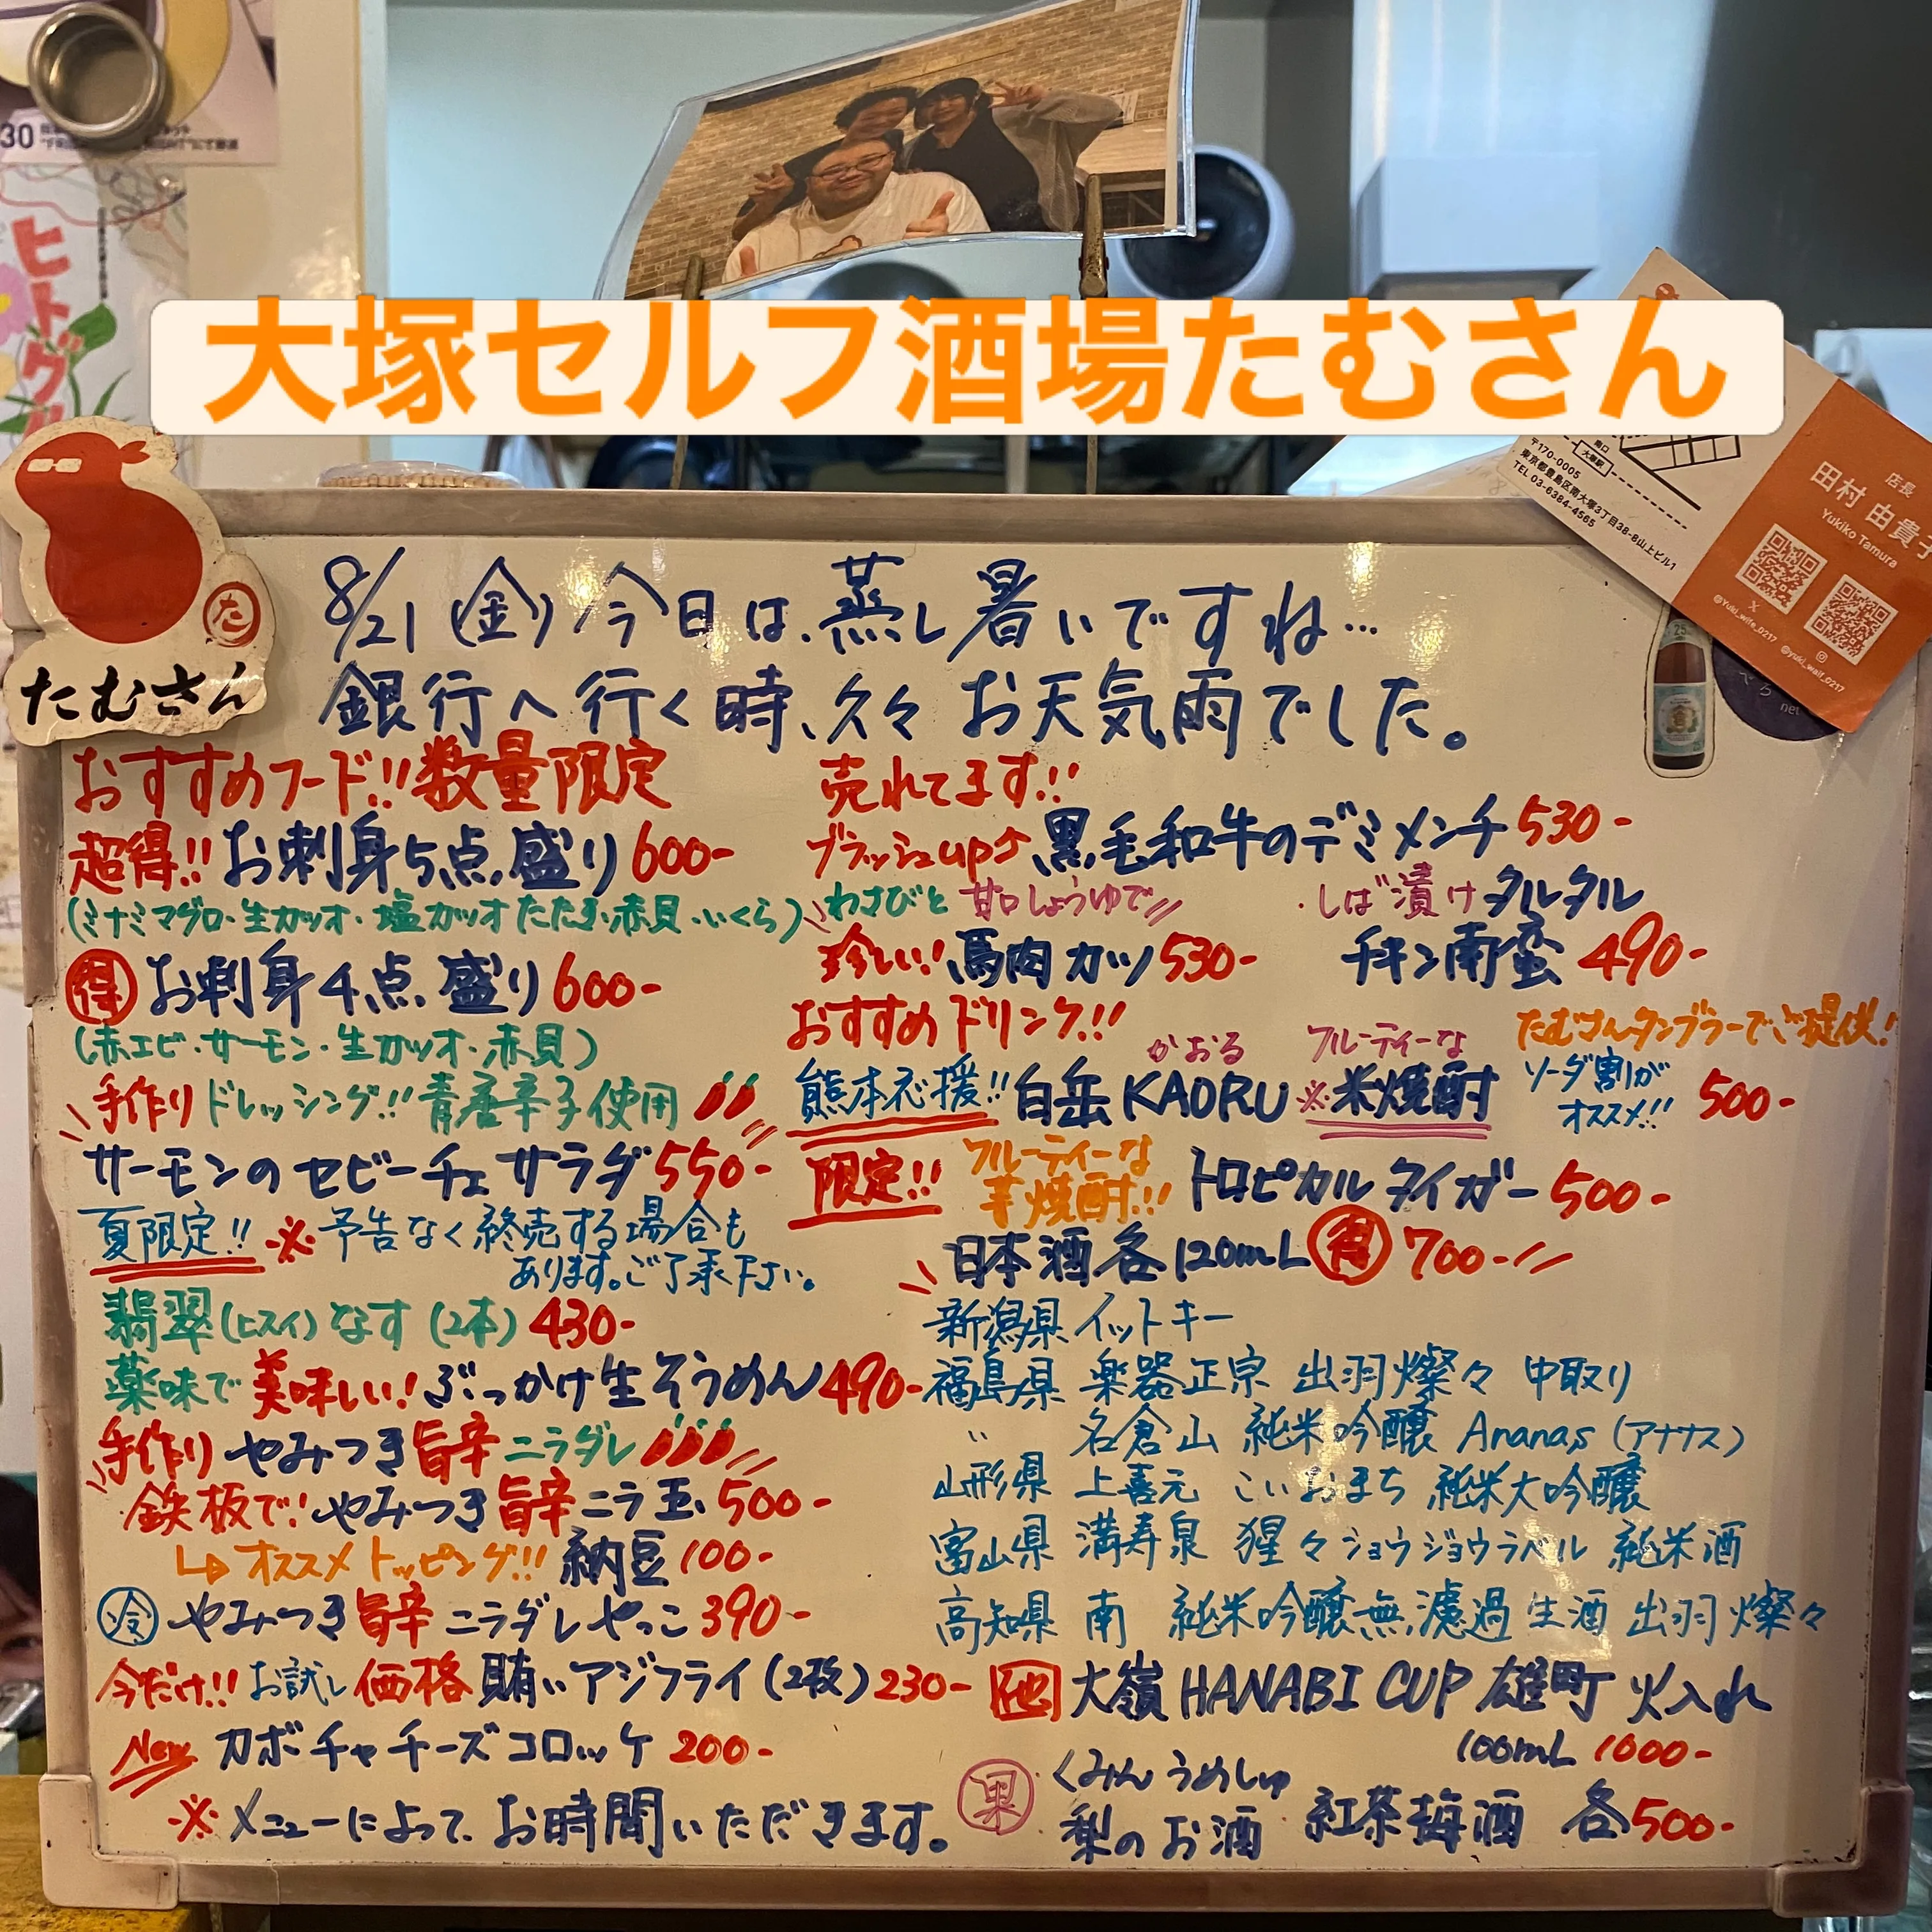 大塚セルフ酒場たむさん
30
ヒトグ
南口
大塚駅
〒170-0005
東京都豊島区南大塚3丁目38-8山上ビル1
TEL 03-6384-4565
店長
田村 由貴子
Yukiko Tamura
@Yuki_wife_0217
@yuki_waif_0217
net
た
たむさん
8/21 (金) 今日は、蒸し暑いですね…
銀行へ行く時、久々お天気雨でした。
おすすめフード!! 数量限定
超得!! お刺身5点盛り 600-
(ミナミマグロ・生カツオ・塩カツオたたき・赤貝・いくら)
得 お刺身4点盛り 600-
(赤エビ・サーモン・生カツオ・赤貝)
手作りドレッシング!! 青唐辛子使用
サーモンのセビーチェサラダ 550-
夏限定!! ※予告なく終売する場合も
あります。ご了承下さい。
翡翠(ヒスイ)なす(2本) 430-
薬味で美味しい! ぶっかけ生そうめん 490-
手作り やみつき旨辛ニラダレ
鉄板で! やみつき旨辛ニラ玉 500-
オススメトッピング!! 納豆 100-
冷 やみつき旨辛ニラダレやっこ 390-
今だけ!! お試し価格 賄いアジフライ(2枚) 230-
New カボチャチーズコロッケ 200-
※メニューによって、お時間いただきます。
売れてます!!
ブラッシュup 黒毛和牛のデミメンチ 530-
わさびと甘口しょうゆで
珍しい! 馬肉カツ 530-
しば漬けタルタル
チキン南蛮 490-
おすすめドリンク!!
たむさんタンブラーでご提供!
かおる フルーティーな
熊本応援!! 白岳KAORU ※米焼酎 ソーダ割が
オススメ!! 500-
限定!! フルーティーな
芋焼酎!! トロピカルタイガー 500-
日本酒各120mL 得 700-
新潟県 イットキー
福島県 楽器正宗 出羽燦々 中取り
〃 名倉山 純米吟醸 Ananas (アナナス)
山形県 上喜元 こいおまち 純米大吟醸
富山県 満寿泉 猩々ショウジョウラベル 純米酒
高知県 南 純米吟醸無濾過生酒 出羽燦々
他 大嶺 HANABI CUP 雄町 火入れ
100mL 1000-
果 くみん うめしゅ
梨のお酒 紅茶梅酒 各500-